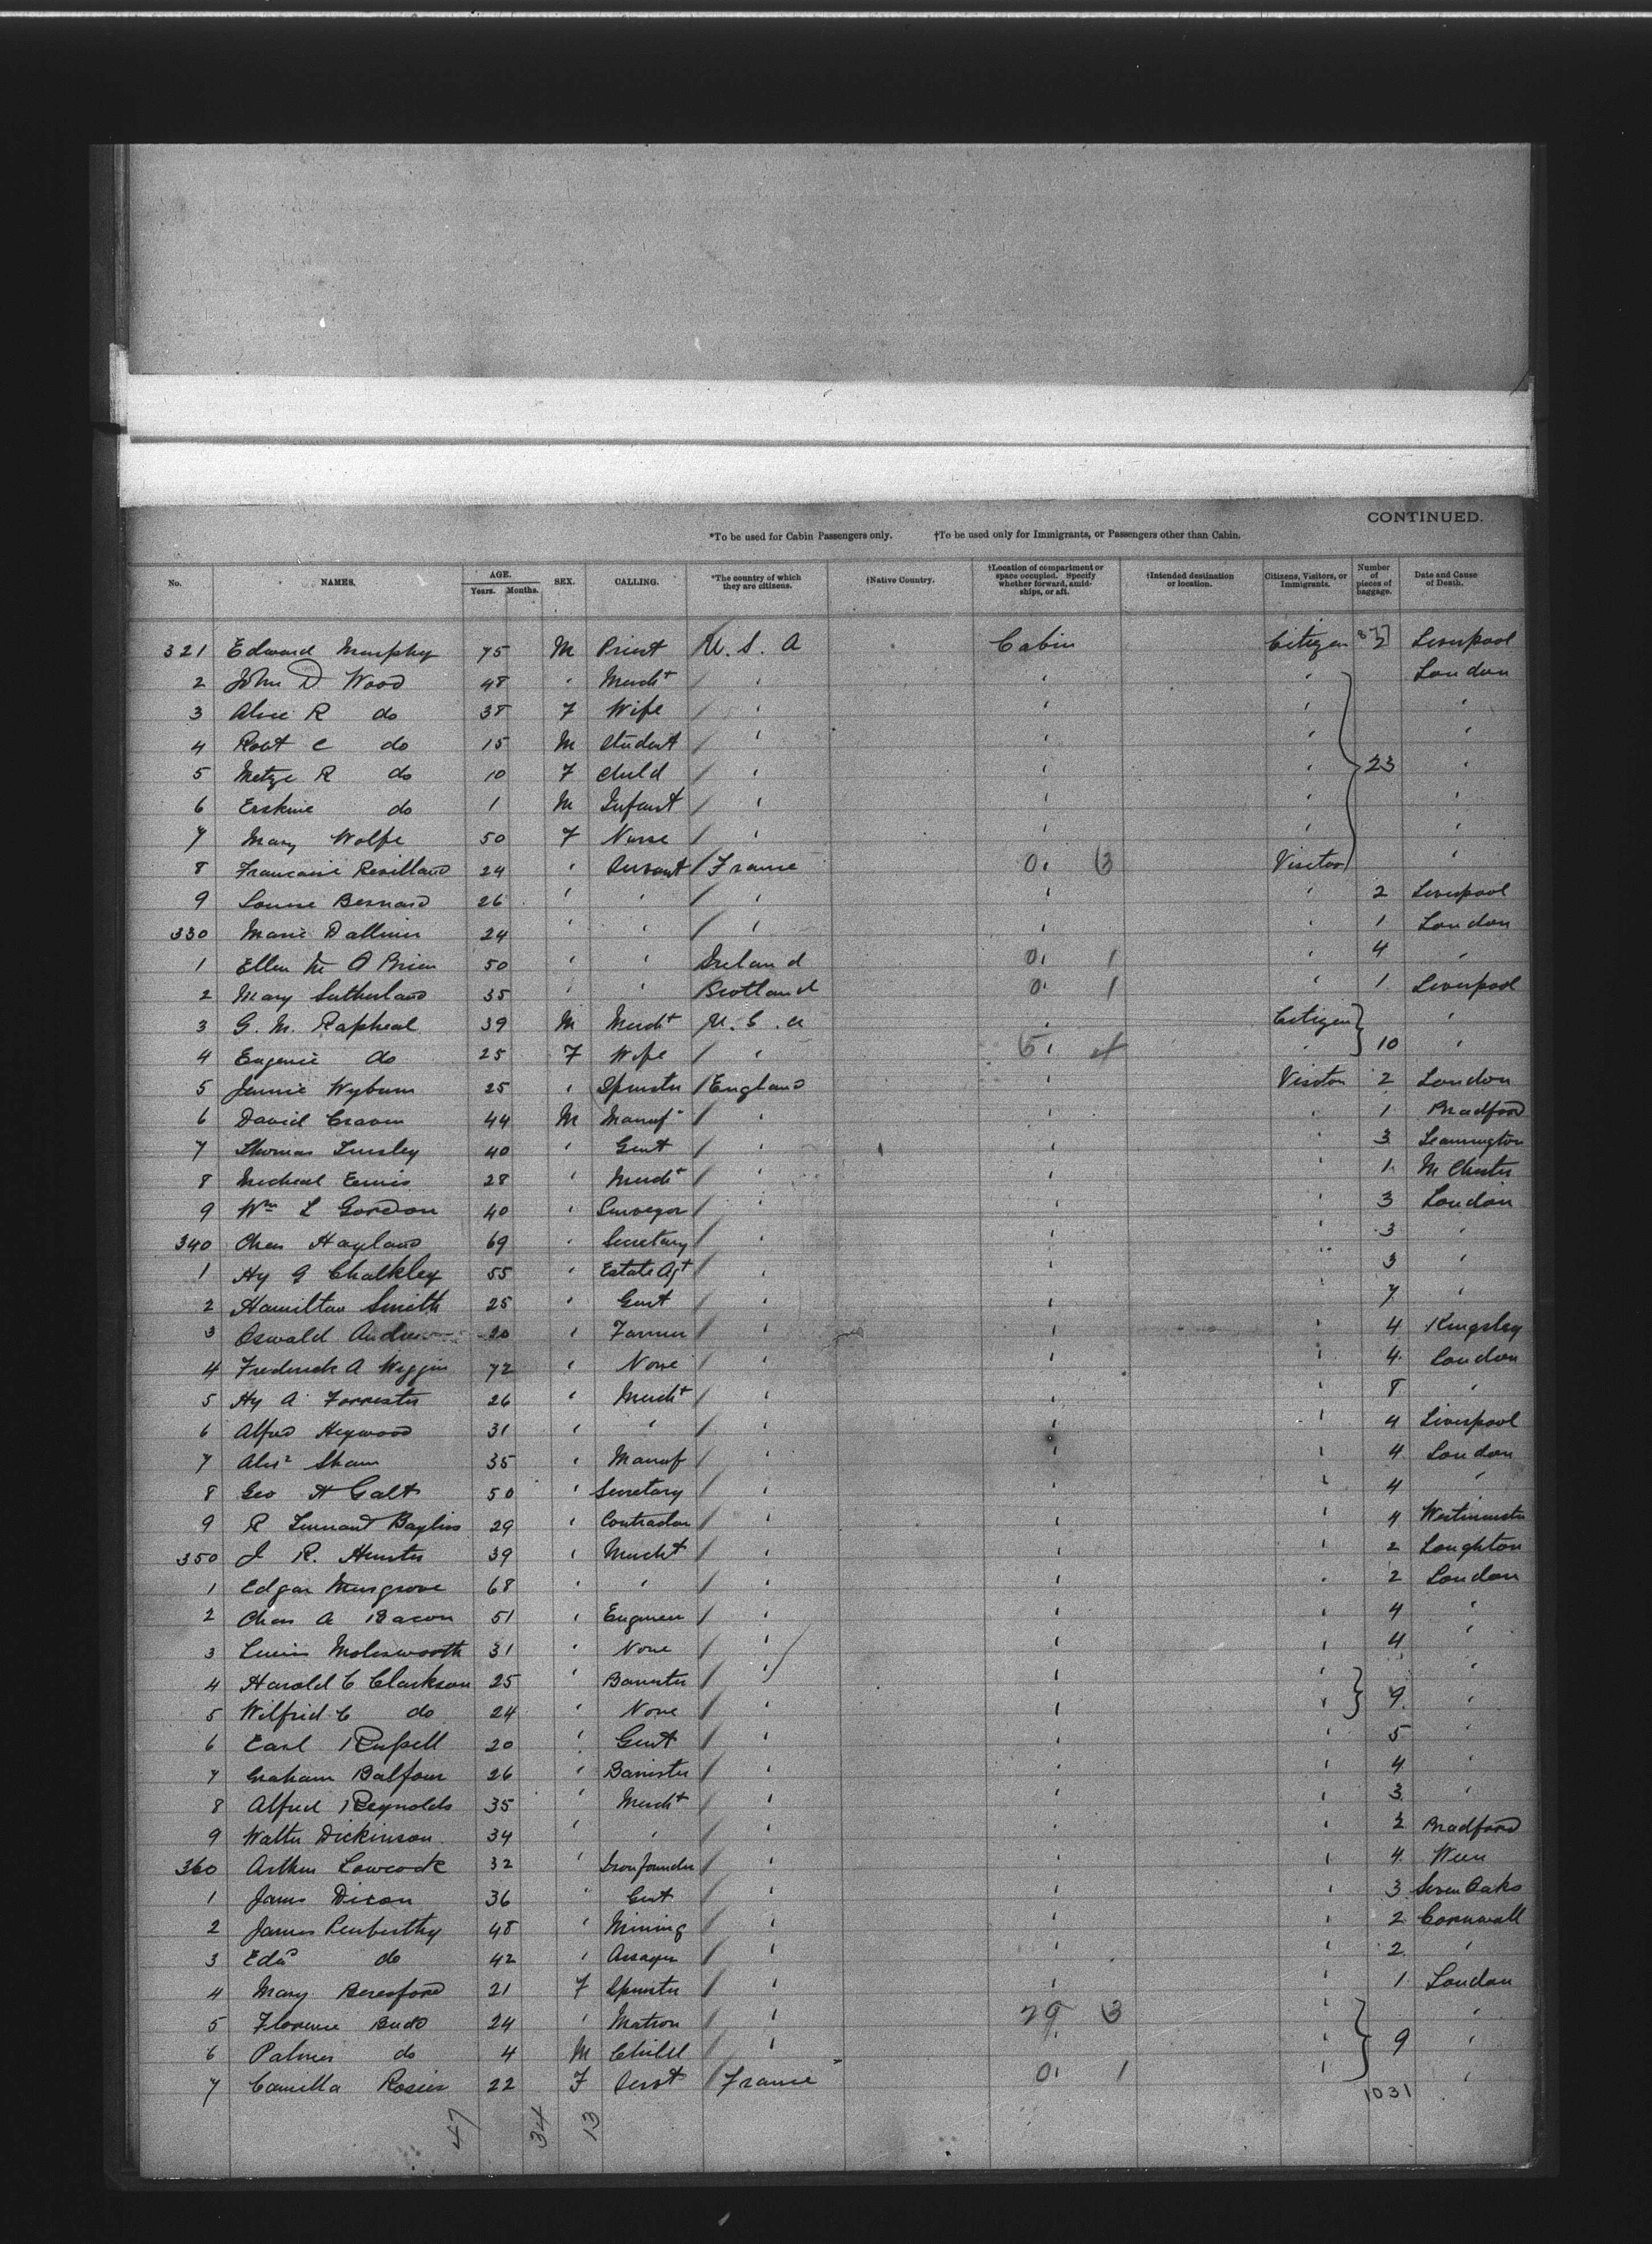 CONTINUED.
*To be used for Cabin Passengers only. †To be used only for Immigrants, or Passengers other than Cabin.
No. NAMES. AGE. Years. Months. SEX. CALLING. *The country of which they are citizens. †Native Country. †Location of compartment or space occupied. Specify whether forward, amidships, or aft. †Intended destination or location. Citizens, Visitors, or Immigrants. Number of pieces of baggage. Date and Cause of Death.
321 Edward Murphy 75 M Priest U. S. A Cabin Citizen 2 Liverpool
2 John D Wood 48 " Mercht " " " London
3 Alice R do 38 F Wife " " " "
4 Robt C do 15 M Student " " " "
5 Metze R do 10 F Child " " " 23 "
6 Erskine do 1 M Infant " " " "
7 Mary Wolfe 50 F Nurse " " " "
8 Francaise 24 " Servant France 0 3 Visitor "
9 Louise Bernard 26 " " " " " 2 Liverpool
330 Marie 24 " " " " " 1 London
1 Ellen O Brien 50 " " Ireland 0 1 " 4 "
2 Mary Sutherland 35 " " Scotland 0 1 " 1 Liverpool
3 G. M. Rapheal 39 M Mercht U. S. A " Citizen "
4 Eugenie do 25 F Wife " 5 4 " 10 "
5 Jennie Wyburn 25 " Spinster England " Visitor 2 London
6 David Craven 44 M Manuf " " " 1 Bradford
7 Thomas 40 " Gent " " " 3 Leamington
8 Micheal Ennis 28 " Mercht " " " 1 M Chester
9 Wm L Gordon 40 " Surveyor " " " 3 London
340 Chas Hayland 69 " Secretary " " " 3 "
1 Hy G Chalkley 55 " Estate Agt " " " 3 "
2 Hamilton Smith 25 " Gent " " " 7 "
3 Oswald 20 " Farmer " " " 4 Kingsley
4 Frederick A Wiggin 72 " None " " " 4 London
5 Hy A Forrester 26 " Mercht " " " 8 "
6 Alfred Heywood 31 " " " " " 4 Liverpool
7 Alexr Sham 35 " Manuf " " " 4 London
8 Geo H Galt 50 " Secretary " " " 4 "
9 R Lennard Bayliss 29 " Contractor " " " 4 Westminster
350 J R. Hunter 39 " Mercht " " " 2 Loughton
1 Edgar Musgrove 68 " " " " " 2 London
2 Chas A Bacon 51 " Engineer " " " 4 "
3 Lewis Molesworth 31 " None " " " 4 "
4 Harold C Clarkson 25 " Barrister " " " "
5 Wilfrid C do 24 " None " " " 9 "
6 Earl Russell 20 " Gent " " " 5 "
7 Graham Balfour 26 " Barrister " " " 4 "
8 Alfred Reynolds 35 " Mercht " " " 3 "
9 Walter Dickinson 34 " " " " " 2 Bradford
360 Arthur Lowcock 32 " Ironfounder " " " 4 Wem
1 James Dixon 36 " Gent " " " 3 Seven Oaks
2 James Penberthy 48 " Mining " " " 2 Cornwall
3 Edwd do 42 " Assayer " " " 2 "
4 Mary Beresford 21 F Spinster " " " 1 London
5 Florence Budd 24 " Matron " 29 3 " "
6 Palmer do 4 M Child " " " 9 "
7 Camilla Rosier 22 F Servt France 0 1 " "
1031
47 34 13